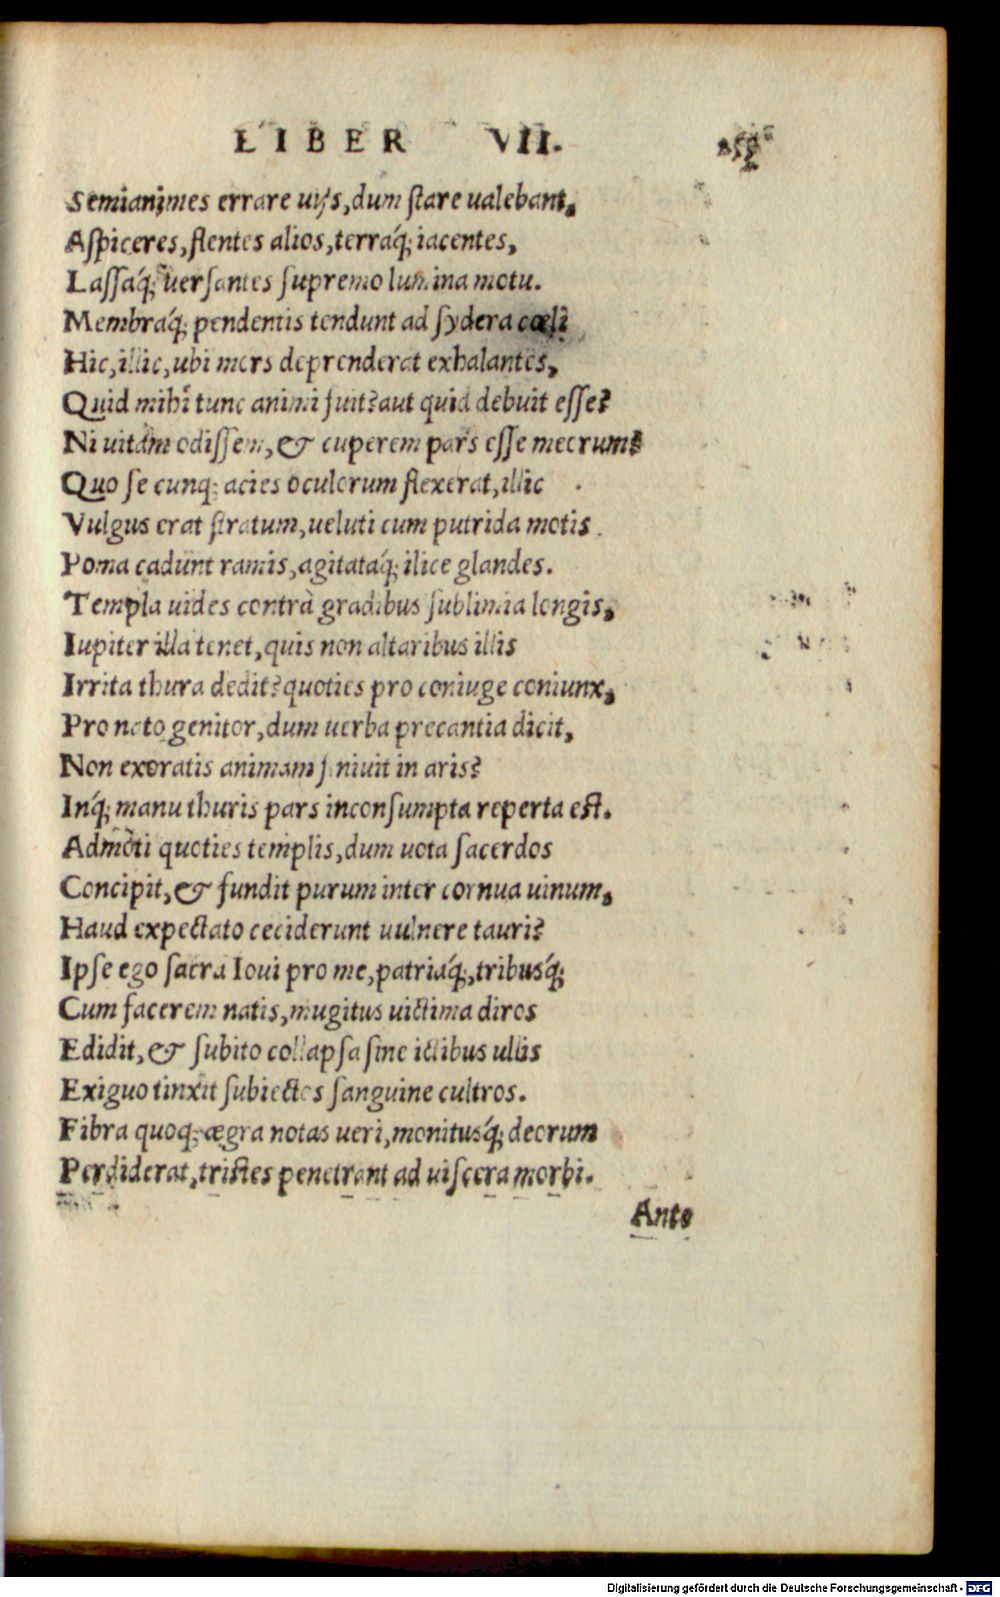 LIBER VII.
Semianimes errare uijs, dum stare ualebant,
Aspiceres, flentes alios, terraq́; iacentes,
Lassaq́; uersantes supremo lumina motu.
Membraq́; pendentis tendunt ad sydera cœli
Hic, illic, ubi mors deprenderat exhalantes,
Quid mihi tunc animi fuit? aut quid debuit esse?
Ni uitam odissem, & cuperem pars esse meorum?
Quo se cunq; acies oculorum flexerat, illic
Vulgus erat stratum, ueluti cum putrida motis
Poma cadunt ramis, agitataq́; ilice glandes.
Templa uides contrà gradibus sublimia longis,
Iupiter illa tenet, quis non altaribus illis
Irrita thura dedit? quoties pro coniuge coniunx,
Pro nato genitor, dum uerba precantia dicit,
Non exoratis animam finiuit in aris?
Inq́; manu thuris pars inconsumpta reperta est.
Admoti quoties templis, dum uota sacerdos
Concipit, & fundit purum inter cornua uinum,
Haud expectato ceciderunt uulnere tauri?
Ipse ego sacra Ioui pro me, patriaq́;, tribusq́;
Cum facerem natis, mugitus uictima diros
Edidit, & subito collapsa sine ictibus ullis
Exiguo tinxit subiectos sanguine cultros.
Fibra quoq; ægra notas ueri, monitusq́; deorum
Perdiderat, tristes penetrant ad uiscera morbi.
Ante
Digitalisierung gefördert durch die Deutsche Forschungsgemeinschaft - DFG